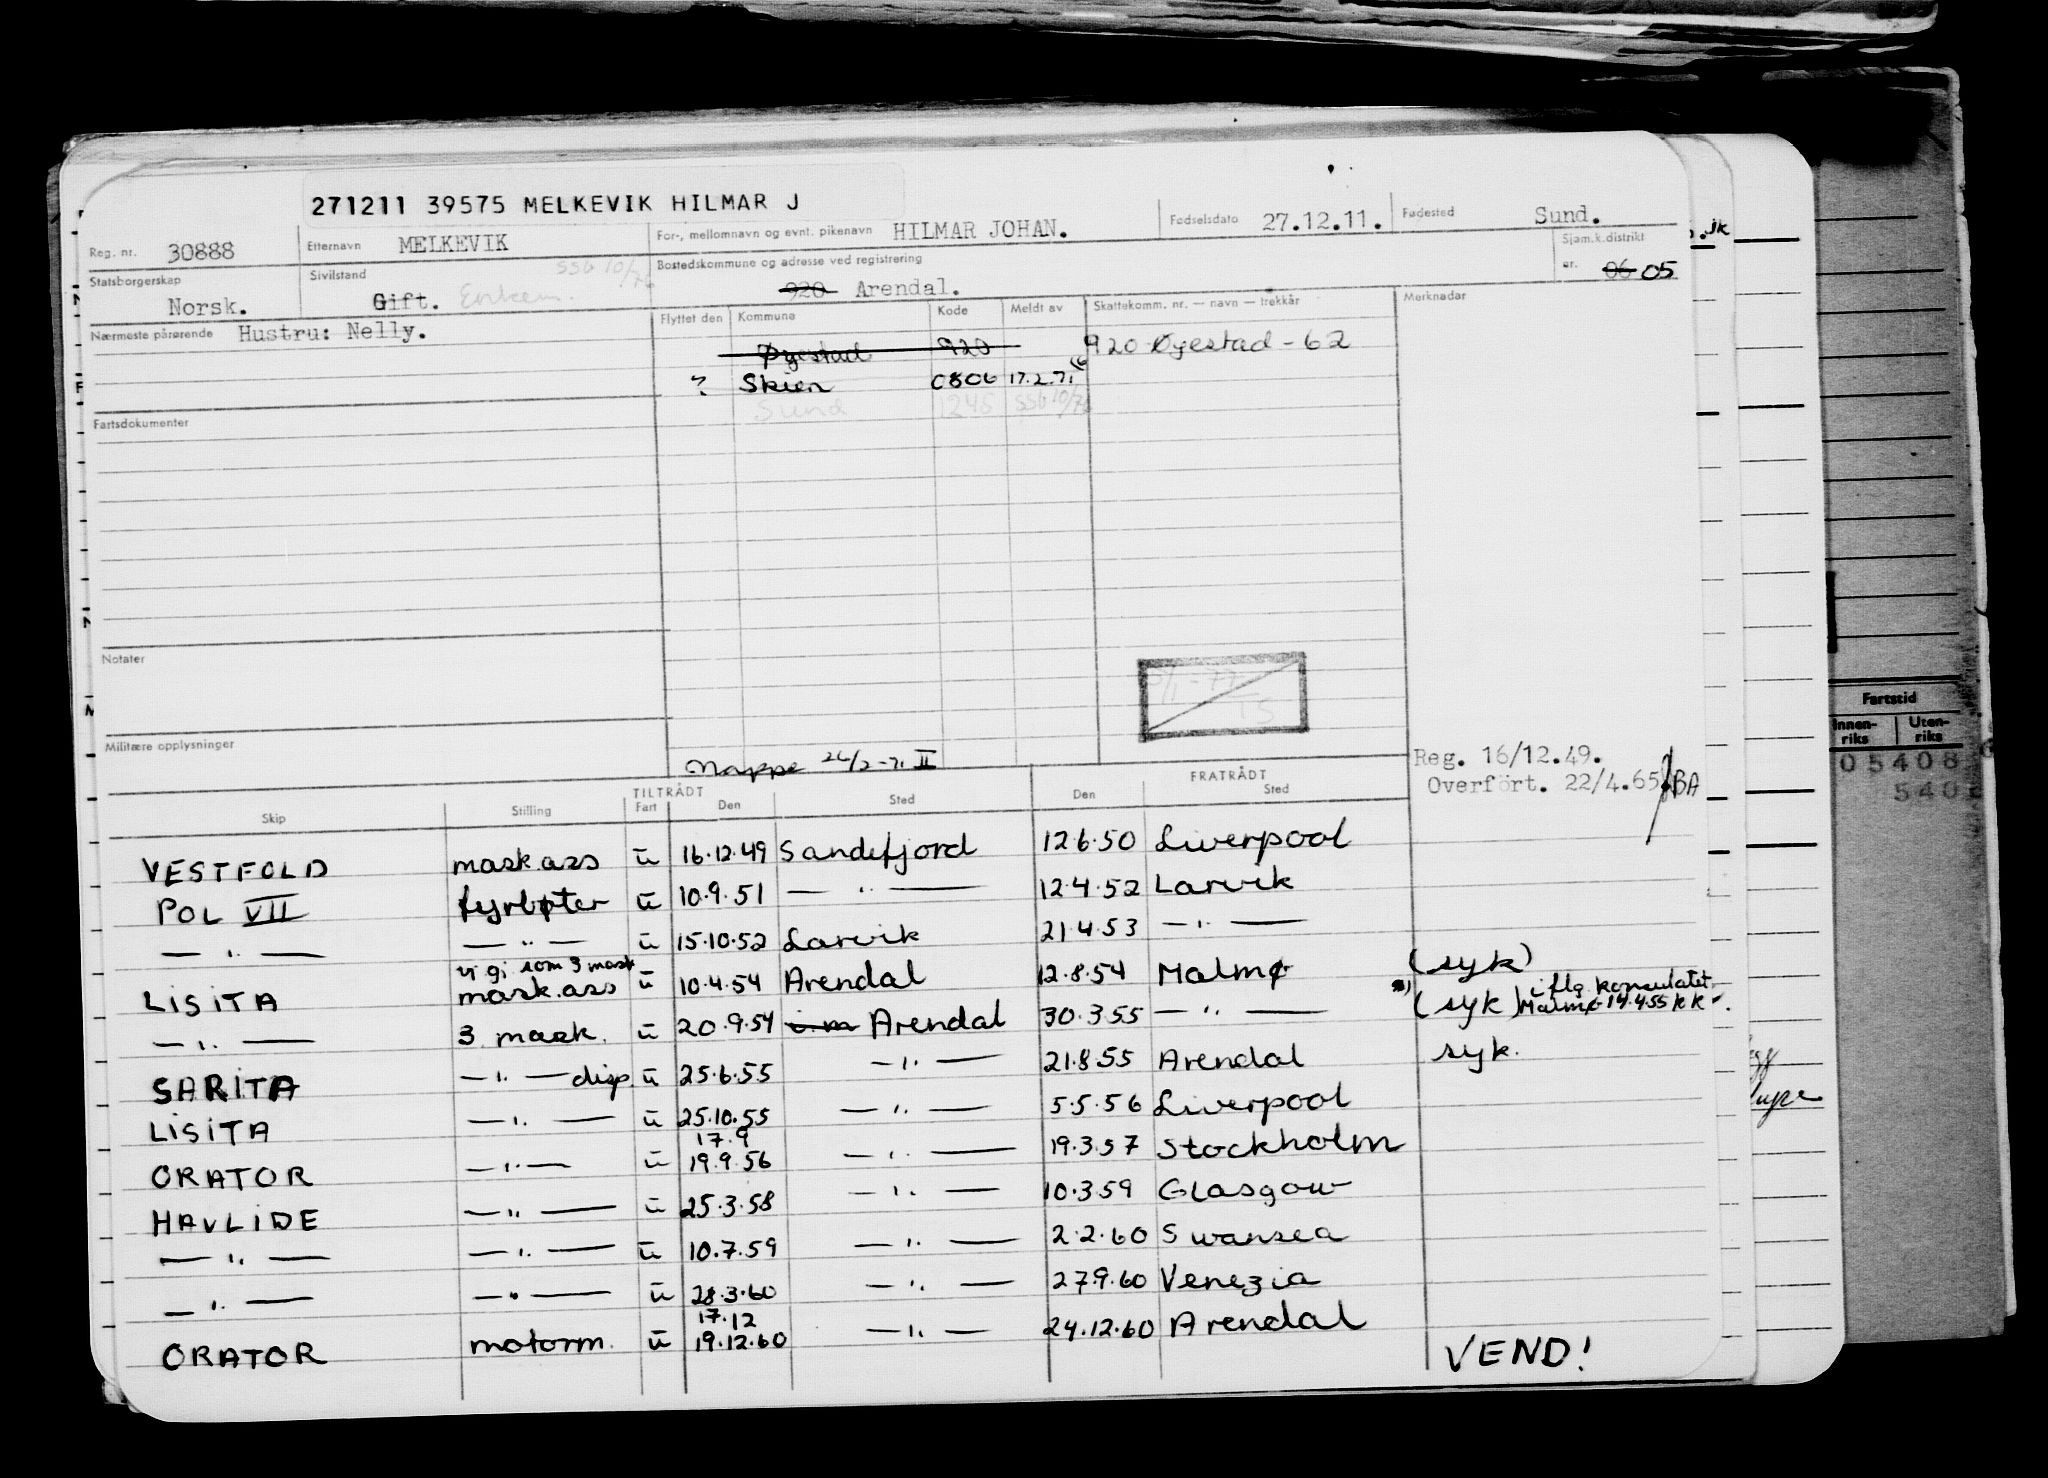 271211 39575 MELKEVIK HILMAR J
Reg. nr. 30888 Etternavn MELKEVIK For-, mellomnavn og evnt. pikenavn HILMAR JOHAN. Fødselsdato 27.12.11. Fødested Sund.
Statsborgerskap Norsk. Sivilstand Gift. Enkem. SSB 10/76 Bostedskommune og adresse ved registrering 920 Arendal. Sjøm.k.distrikt nr. 06 05
Nærmeste pårørende Hustru: Nelly. Flyttet den Kommune Kode Meldt av Skattekomm. nr. — navn — trekkår Merknader
Øyestad 920 920 Øyestad - 62
? Skien 0806 17.2.71
Sund 1245 SSB 10/76
Fartsdokumenter
Notater
Militære opplysninger
Mappe 24/2-71 II
Reg. 16/12.49.
Overført. 22/4.65 BA
TILTRÅDT FRATRÅDT
Skip Stilling Fart Den Sted Den Sted
VESTFOLD mask.ass u 16.12.49 Sandefjord 12.6.50 Liverpool
POL VII fyrbøter u 10.9.51 — " — 12.4.52 Larvik
— " — — " — u 15.10.52 Larvik 21.4.53 — " —
vi gj som 3 mask
LISITA mask.ass u 10.4.54 Arendal 12.8.54 Malmø (syk)
— " — 3. mask. u 20.9.54 i.m Arendal 30.3.55 — " — (syk) iflg konsulatet Malmø 14.4.55 KK
SARITA — " — disp. u 25.6.55 — " — 21.8.55 Arendal syk.
LISITA — " — u 25.10.55 — " — 5.5.56 Liverpool
17.9
ORATOR — " — u 19.9.56 — " — 19.3.57 Stockholm
HAVLIDE — " — u 25.3.58 — " — 10.3.59 Glasgow
— " — — " — u 10.7.59 — " — 2.2.60 Swansea
— " — — " — u 28.3.60 — " — 27.9.60 Venezia
17.12
ORATOR motorm. u 19.12.60 — " — 24.12.60 Arendal
VEND!
Fartstid
Innen-riks Uten-riks
05408
540